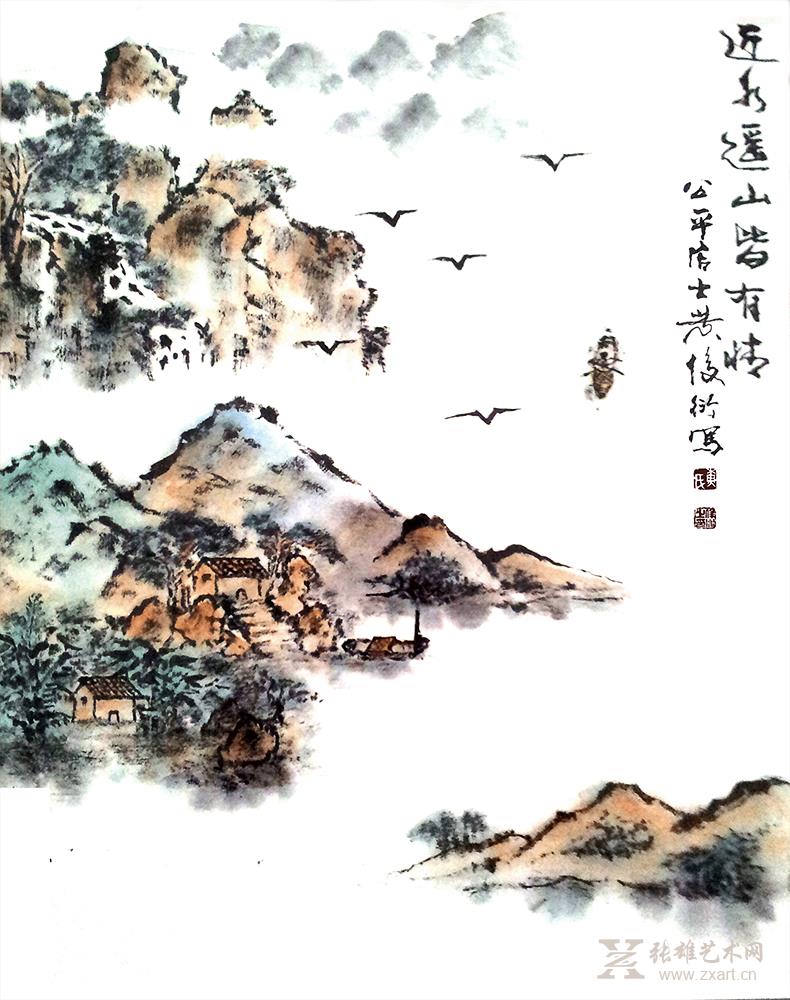 近水遥山皆有情
公平居士黄俊衍写
黄氏
张雄艺术网
www.zxart.cn